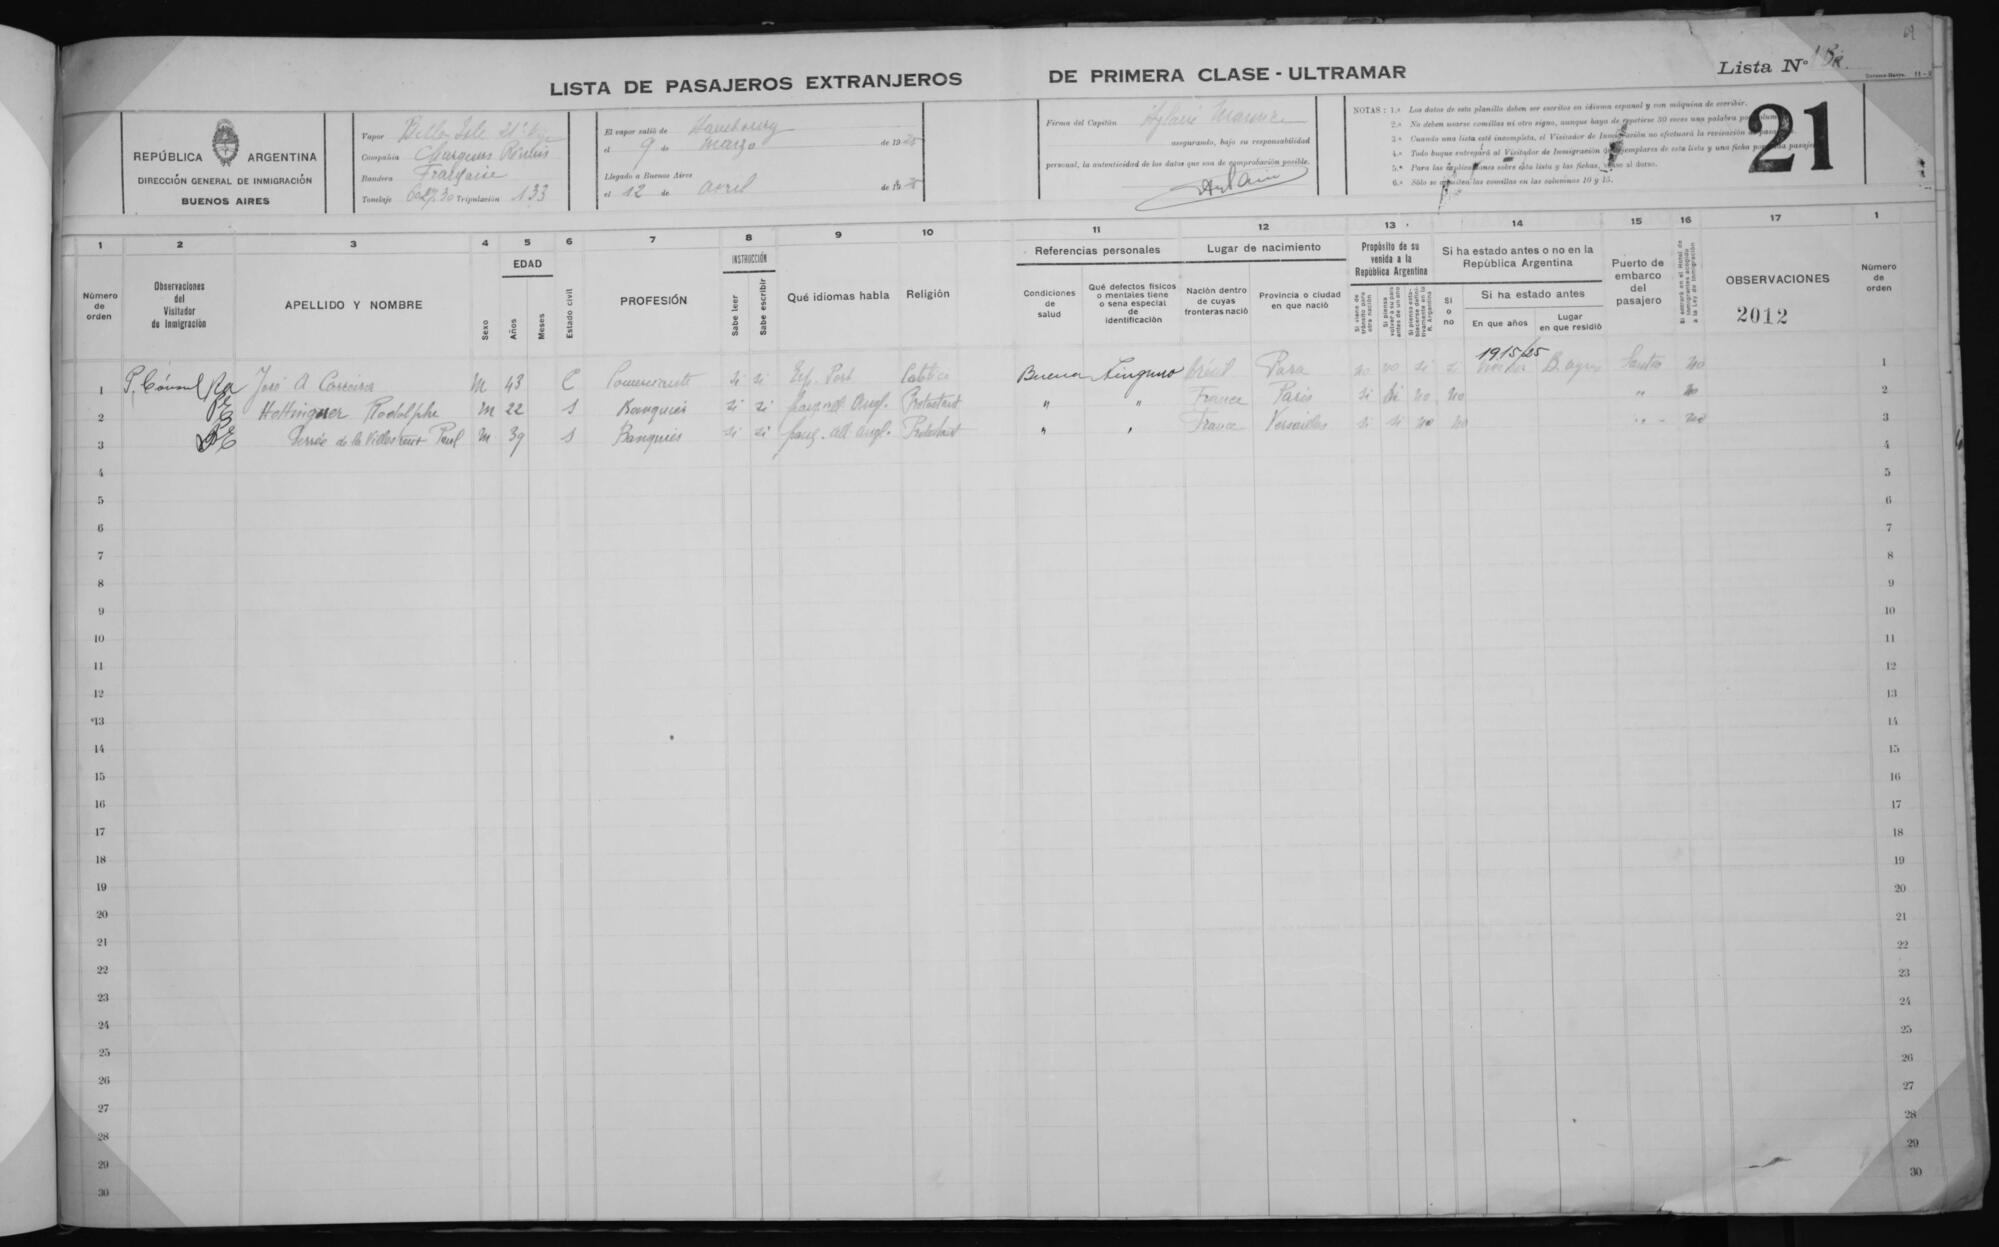 LISTA DE PASAJEROS EXTRANJEROS DE PRIMERA CLASE - ULTRAMAR
Lista Nº
21
REPÚBLICA ARGENTINA
DIRECCIÓN GENERAL DE INMIGRACIÓN
BUENOS AIRES
Vapor Belle Isle
Compañia Chargeurs Réunis
Bandera Française
Tonelaje Tripulación 133
El vapor salió de Hambourg
el 9 de marzo de 19
Llegado a Buenos Aires
el 12 de avril de 19
Firma del Capitán
asegurando, bajo su responsabilidad
personal, la autenticidad de los datos que son de comprobación posible.
NOTAS: 1.ª Los datos de esta planilla deben ser escritos en idioma espanol y con máquina de escribir.
2.ª No deben usarse comillas ni otro signo, aunque haya de repetirse 30 veces una palabra por
3.ª Cuando una lista esté incompleta, el Visitador de Inmigración no efectuará la revisación de
4.ª Todo buque entregará al Visitador de Inmigración ejemplares de esta lista y una ficha por
5.ª Para las explicaciones sobre esta lista y las fichas, véase al dorso.
6.ª Sólo se comillas en las columnas 10 y 15.
1 2 3 4 5 6 7 8 9 10 11 12 13 14 15 16 17 1
Número de orden
Observaciones del Visitador de Inmigración
APELLIDO Y NOMBRE
Sexo
EDAD
Años
Meses
Estado civil
PROFESIÓN
INSTRUCCIÓN
Sabe leer
Sabe escribir
Qué idiomas habla
Religión
Referencias personales
Condiciones de salud
Qué defectos físicos o mentales tiene o sena especial de identificación
Lugar de nacimiento
Nación dentro de cuyas fronteras nació
Provincia o ciudad en que nació
Propósito de su venida a la República Argentina
Si viene de tránsito para otra nación
Si piensa volver a su país antes de un ano
Si piensa establecerse definitivamente en la R. Argentina
Si ha estado antes o no en la República Argentina
Si o no
Si ha estado antes
En que años
Lugar en que residió
Puerto de embarco del pasajero
Si entrará en el Hotel de Inmigrantes acogido a la Ley de Inmigración
OBSERVACIONES
2012
Número de orden
1 P. Cónsul José A M 43 C Comerciante si si Esp. Port Católica Buena Ninguno brésil Para no no si si 1915/25 B. ayres Santos no 1
2 Hottinguer Rodolphe M 22 S Banquier si si Angl. Protestant " " France Paris si si no no " no 2
3 de la Villestreux Paul M 39 S Banquier si si all angl. Protestant " " France Versailles si si no no " no 3
4 4
5 5
6 6
7 7
8 8
9 9
10 10
11 11
12 12
13 13
14 14
15 15
16 16
17 17
18 18
19 19
20 20
21 21
22 22
23 23
24 24
25 25
26 26
27 27
28 28
29 29
30 30